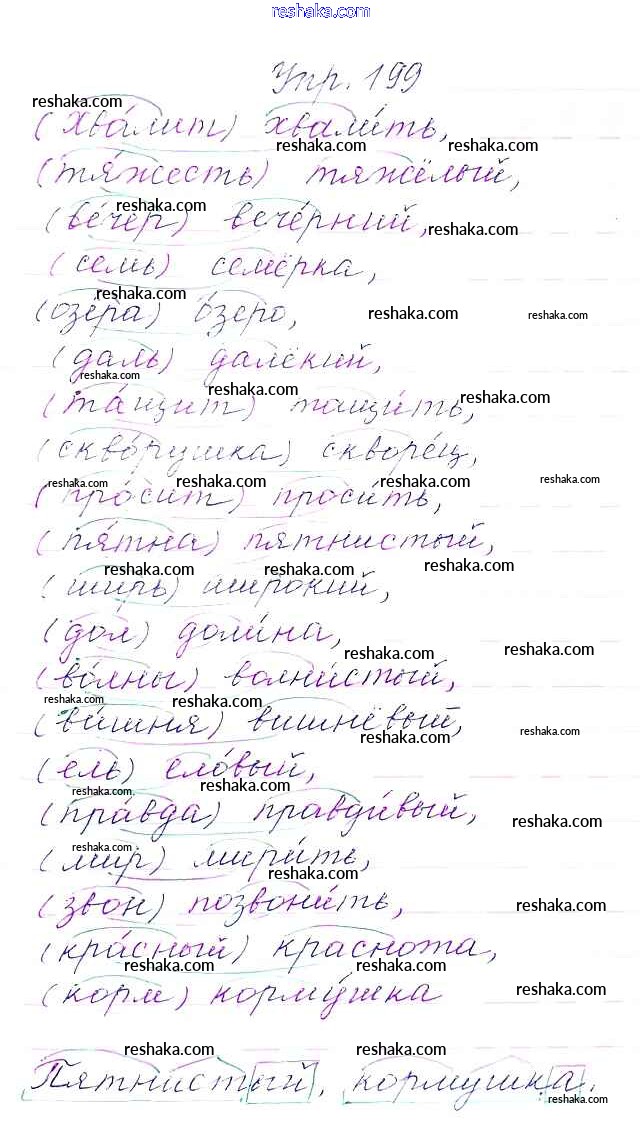 reshaka.com
Упр. 199
reshaka.com
(хва́лит) хвали́ть,
reshaka.com reshaka.com
(тя́жесть) тяжёлый,
reshaka.com
(ве́чер) вече́рний,
reshaka.com
(семь) семёрка,
reshaka.com
(озёра) о́зеро,
reshaka.com reshaka.com
(даль) далёкий,
reshaka.com
reshaka.com reshaka.com
(та́щит) тащи́ть,
(скво́рушка) скворе́ц,
reshaka.com reshaka.com reshaka.com reshaka.com
(про́сит) проси́ть,
(пя́тна) пятнистый,
reshaka.com reshaka.com reshaka.com
(ширь) широкий,
(дол) доли́на,
reshaka.com reshaka.com
(во́лны) волни́стый,
reshaka.com reshaka.com
(ви́шня) вишнёвый,
reshaka.com reshaka.com
(ель) ело́вый,
reshaka.com reshaka.com
(пра́вда) правди́вый,
reshaka.com
reshaka.com
(мир) мири́ть,
reshaka.com
(звон) позвони́ть,
reshaka.com
(кра́сный) краснота,
reshaka.com reshaka.com
(корм) корму́шка
reshaka.com
reshaka.com reshaka.com
Пятнистый, кормушка.
reshaka.com